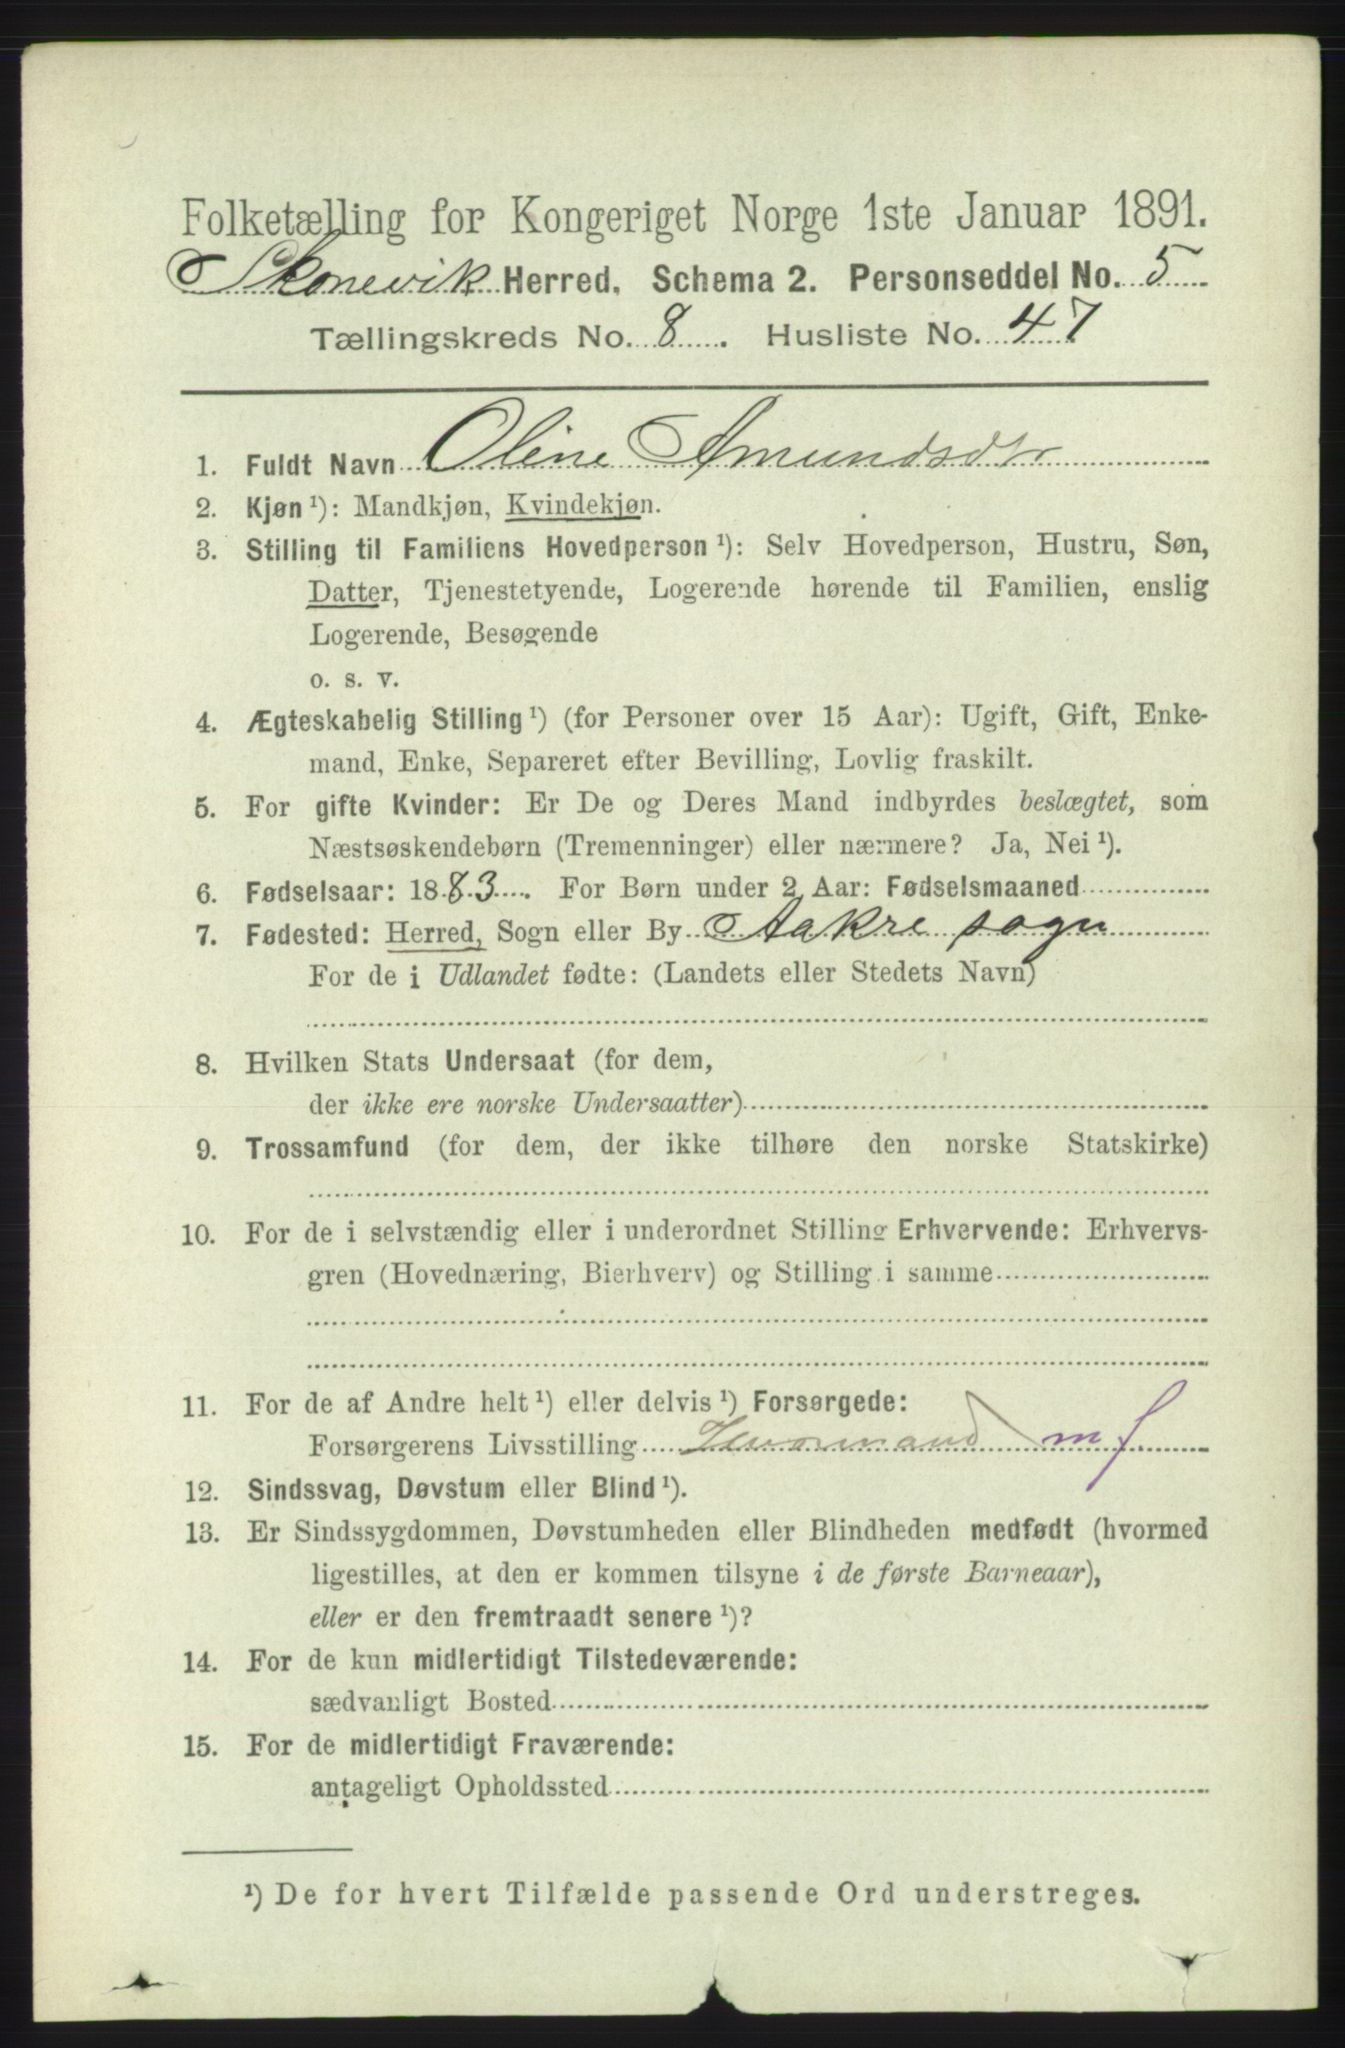 Folketælling for Kongeriget Norge 1ste Januar 1891.
Skonevik Herred. Schema 2. Personseddel No. 5
Tællingskreds No. 8. Husliste No. 47
1. Fuldt Navn Oline Amundsdtr
2. Kjøn ¹): Mandkjøn, Kvindekjøn.
3. Stilling til Familiens Hovedperson ¹): Selv Hovedperson, Hustru, Søn,
Datter, Tjenestetyende, Logerende hørende til Familien, enslig
Logerende, Besøgende
o. s. v.
4. Ægteskabelig Stilling ¹) (for Personer over 15 Aar): Ugift, Gift, Enke-
mand, Enke, Separeret efter Bevilling, Lovlig fraskilt.
5. For gifte Kvinder: Er De og Deres Mand indbyrdes beslægtet, som
Næstsøskendebørn (Tremenninger) eller nærmere? Ja, Nei ¹).
6. Fødselsaar: 1883. For Børn under 2 Aar: Fødselsmaaned
7. Fødested: Herred, Sogn eller By Aakre sogn
For de i Udlandet fødte: (Landets eller Stedets Navn)
8. Hvilken Stats Undersaat (for dem,
der ikke ere norske Undersaatter)
9. Trossamfund (for dem, der ikke tilhøre den norske Statskirke)
10. For de i selvstændig eller i underordnet Stilling Erhvervende: Erhvervs-
gren (Hovednæring, Bierhverv) og Stilling i samme
11. For de af Andre helt ¹) eller delvis ¹) Forsørgede:
Forsørgerens Livsstilling m f
12. Sindssvag, Døvstum eller Blind ¹).
13. Er Sindssygdommen, Døvstumheden eller Blindheden medfødt (hvormed
ligestilles, at den er kommen tilsyne i de første Barneaar),
eller er den fremtraadt senere ¹)?
14. For de kun midlertidigt Tilstedeværende:
sædvanligt Bosted
15. For de midlertidigt Fraværende:
antageligt Opholdssted
¹) De for hvert Tilfælde passende Ord understreges.